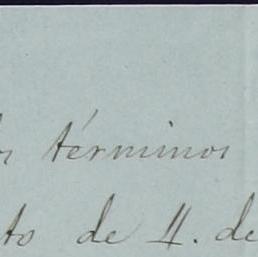 términos
to de 11. de